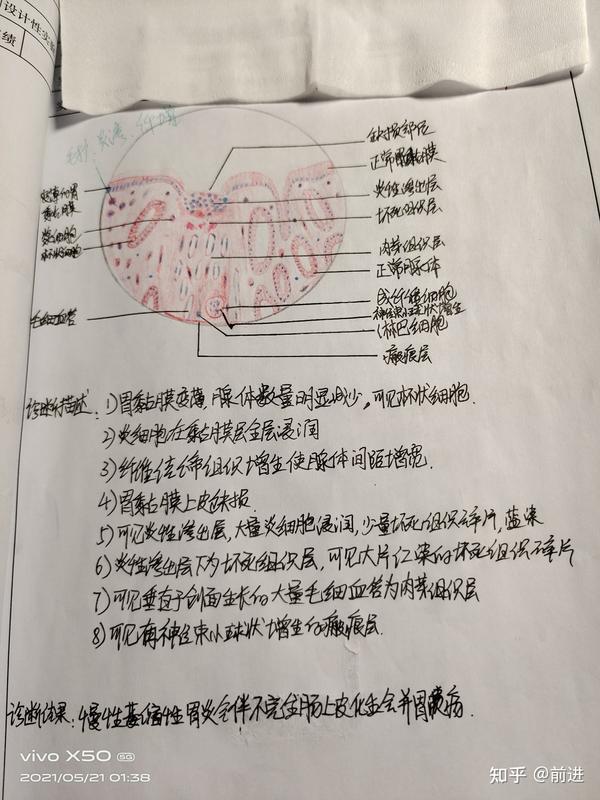 设计性实
绩
缺损部位
正常胃黏膜
炎性渗出层
坏死组织层
肉芽组织层
正常腺体
成纤维细胞
神经束以球状增生
淋巴细胞
瘢痕层
黏膜
炎细胞
杯状细胞
毛细血管
诊断描述:1)胃黏膜变薄,腺体数量明显减少,可见杯状细胞.
2)炎细胞在黏膜层全层浸润
3)纤维结缔组织增生使腺体间距增宽.
4)胃黏膜上皮缺损.
5)可见炎性渗出层,大量炎细胞浸润,少量坏死组织碎片,蓝染
6)炎性渗出层下为坏死组织层,可见大片红染的坏死组织碎片
7)可见垂直于创面生长的大量毛细血管为肉芽组织层
8)可见有神经束以球状增生的瘢痕层.
诊断结果:慢性萎缩性胃炎伴不完全肠上皮化生合并胃溃疡.
vivo X50 5G
2021/05/21 01:38
知乎 @前进